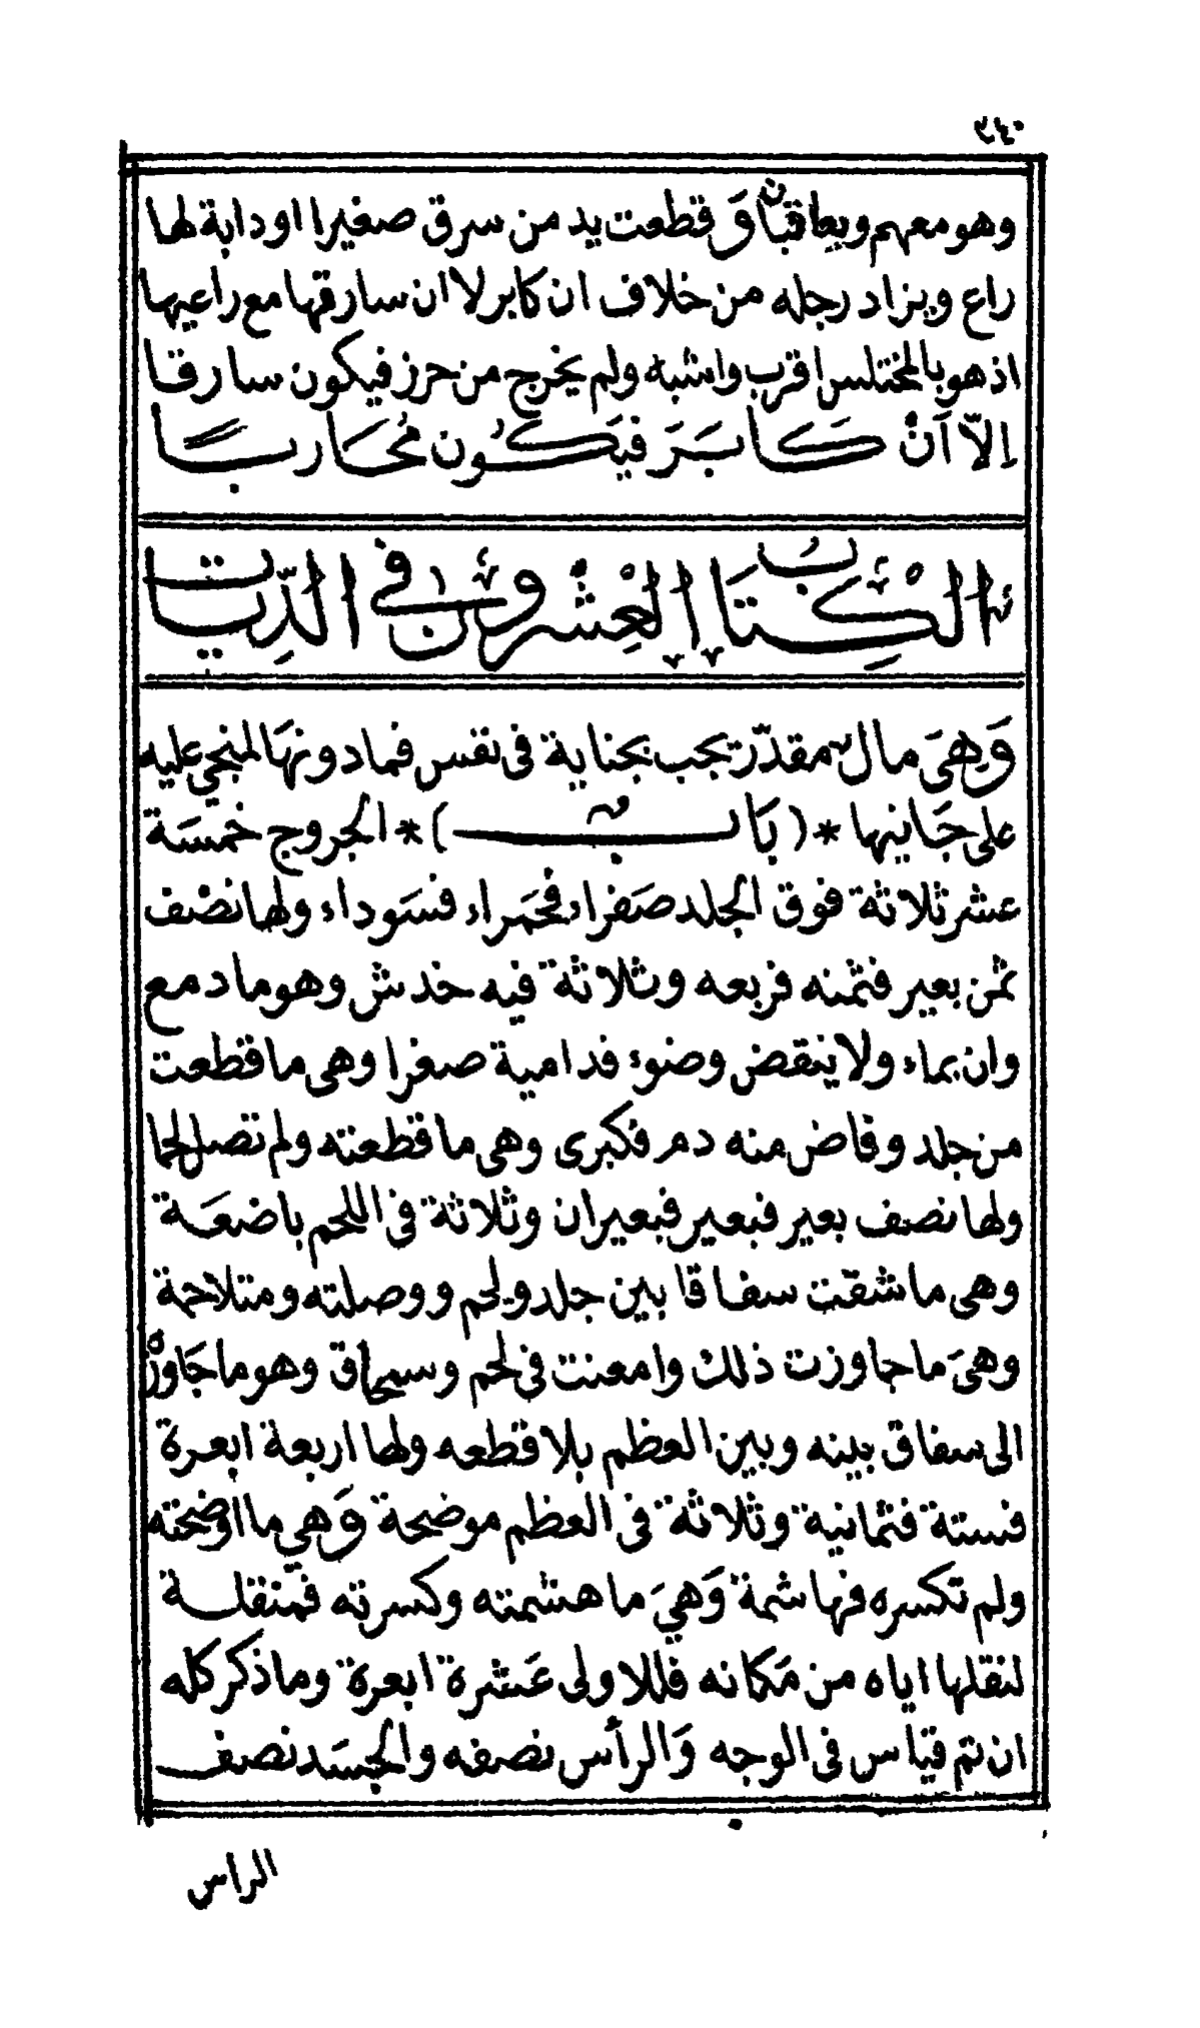 ٣٤٠
وهو معهم ويعاقبان وَقطعت يد من سرق صغيرا او دابة لها
راع ويزاد رجله من خلاف ان كابر لا ان سارقها مع راعيها
اذ هو بالمختلس اقرب واشبه ولم يخرج من حرز فيكون سارقا
اِلاّ اَنْ كَابَرَ فيَكُون مُحَاربًا
الكِتَابُ العِشْرون في الدِّيات
وَهىَ مال مقدّر يجب بجناية فى نفس فما دونهَا لمجني عليه
على جَانيها *(بَاب)* الجروح خمسَة
عشر ثلاثة فوق الجلد صَفراء فحمَراء فسَوداء ولها نصْف
ثمْن بعير فثمنه فربعه وثلاثة فيه خدش وهو ما دمع
وان بماء ولا ينقض وضوء فدامية صغرا وهى ما قطعت
من جلد وفاض منه دم فكبرى وهى ما قطعته ولم تصل لحما
ولها نصف بعير فبعير فبعيران وثلاثة فى اللحم باضعَة
وهى ما شقّت سفاقا بين جلد ولحم ووصلته ومتلاحمة
وهىَ ما جاوزت ذلك وامعنت فى لحم وسمحاق وهو ما جَاوزْ
الى سفاق بينه وبين العظم بلا قطعه ولها اربعة ابعرة
فستة فثمانية وثلاثة فى العظم موضحة وَهي ما اوضحته
ولم تكسره فهاشمة وَهيَ ما هشمته وكسرته فمنقلة
لنقلها اياه من مَكانه فللاولى عَشرة ابعرة وما ذكر كله
ان تم قيَاس فى الوجه وَالرأس نصفه والجسَد نصف
الراس